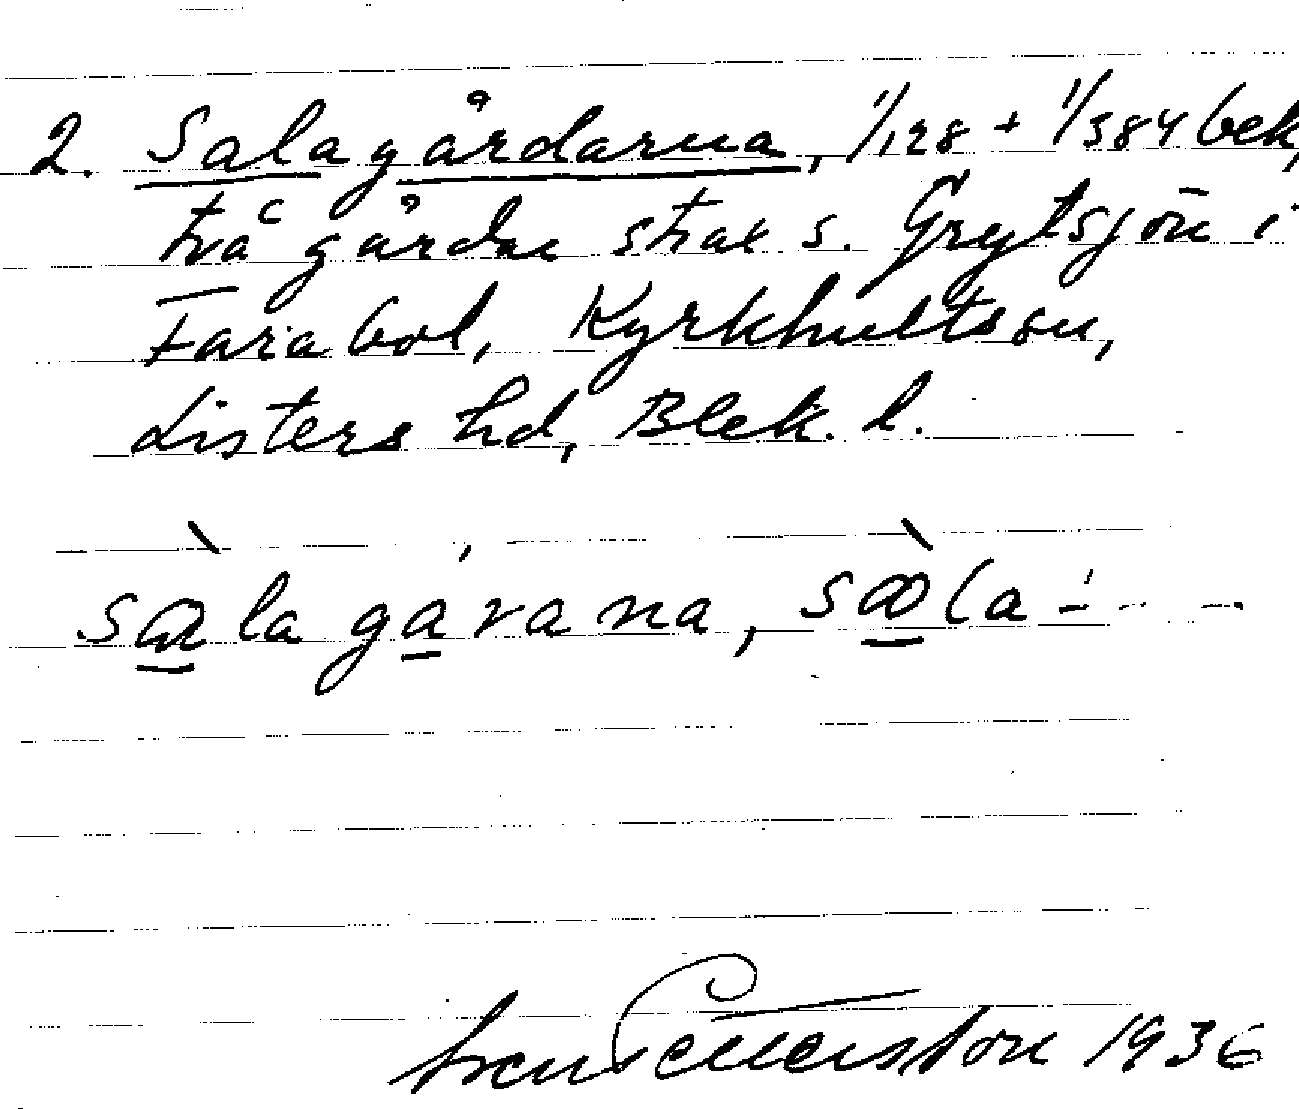 2. Salagårdarna, 1/128 + 1/384 bek,
två gårdar strax s. Grytsjön i
Farabol, Kyrkhultssn,
Listers hd, Blek. l.
sàla gárana, sòla -́ - -
1936